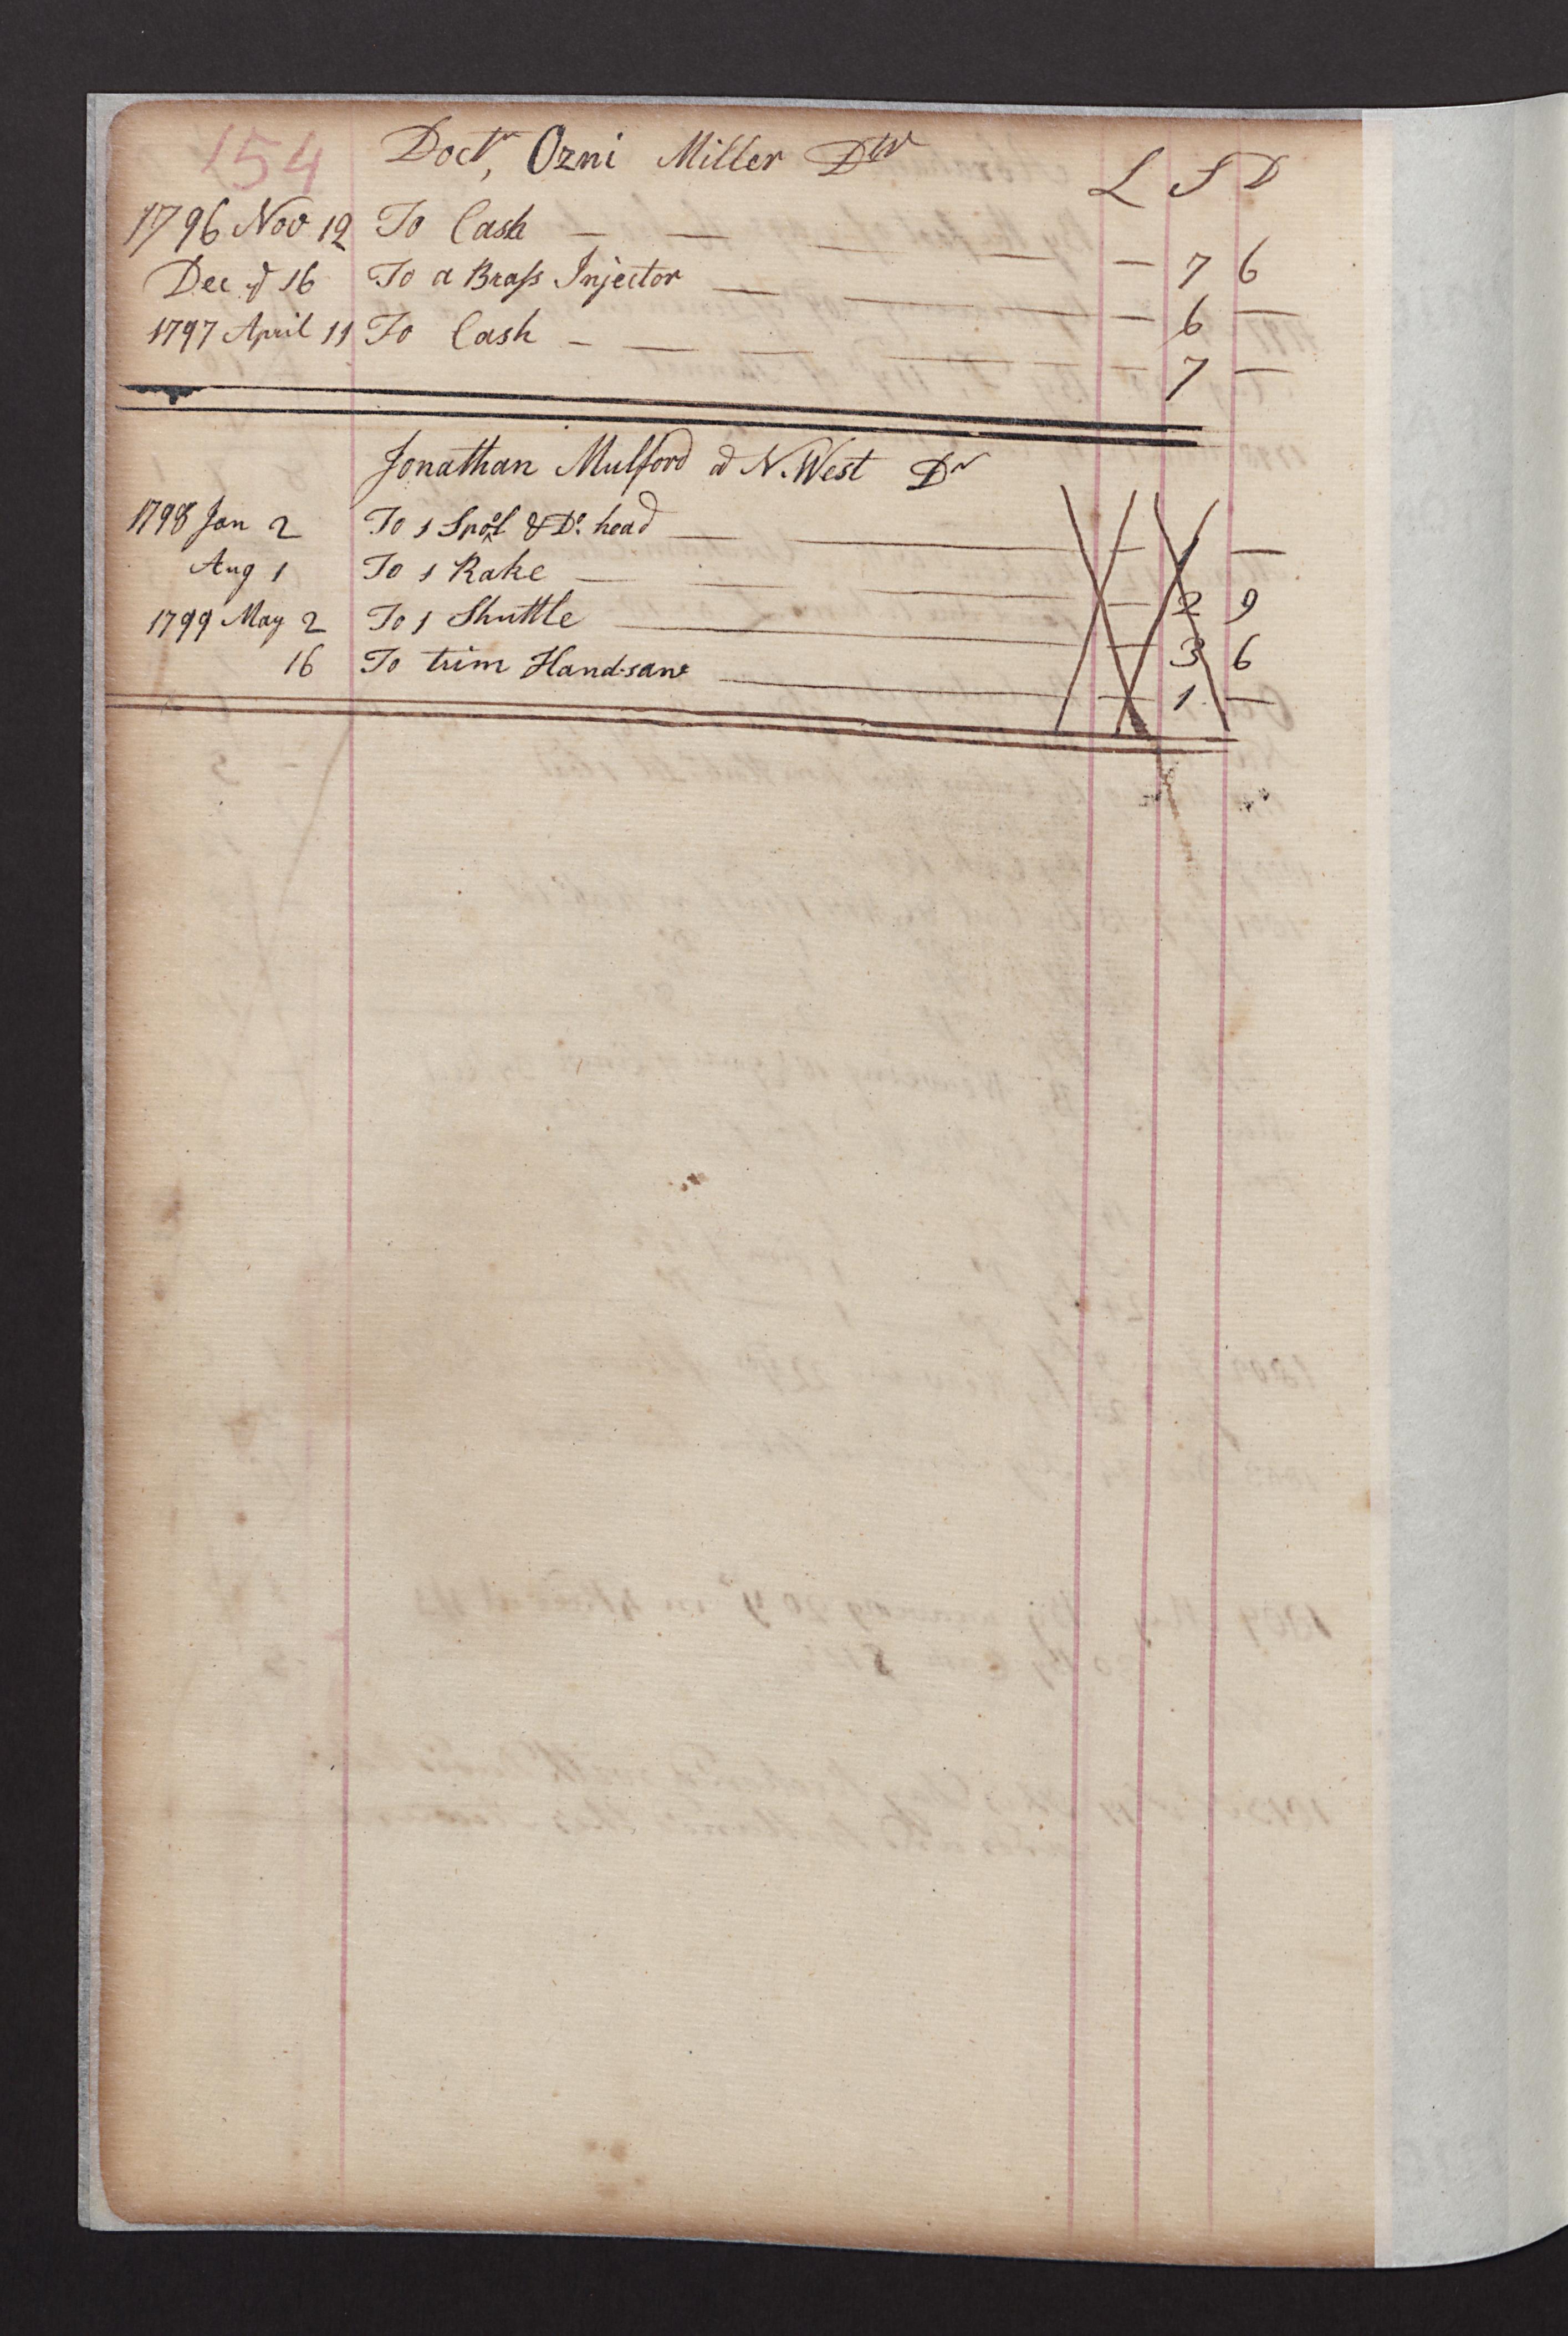 154 Doctr, Ozni Miller Dtr
L S D
1796 Nov 12 To Cash — — — — 7 6
Dec d 16 To a Brass Injector — — — 6 —
1797 April 11 To Cash — — — — — 7 —
Jonathan Mulford d N. West Dr
1798 Jan 2 To 1 Spool & Do. head — — — 1 —
Aug 1 To 1 Rake — — — — 2 9
1799 May 2 To 1 Shuttle — — 3 6
16 To trim Handsaw — — 1 —